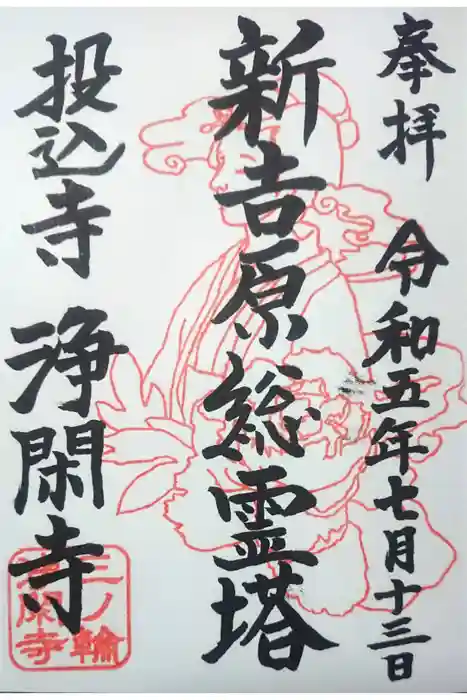 奉拝 令和五年七月十三日
新吉原総霊塔
投込寺 浄閑寺
三ノ輪
浄閑寺